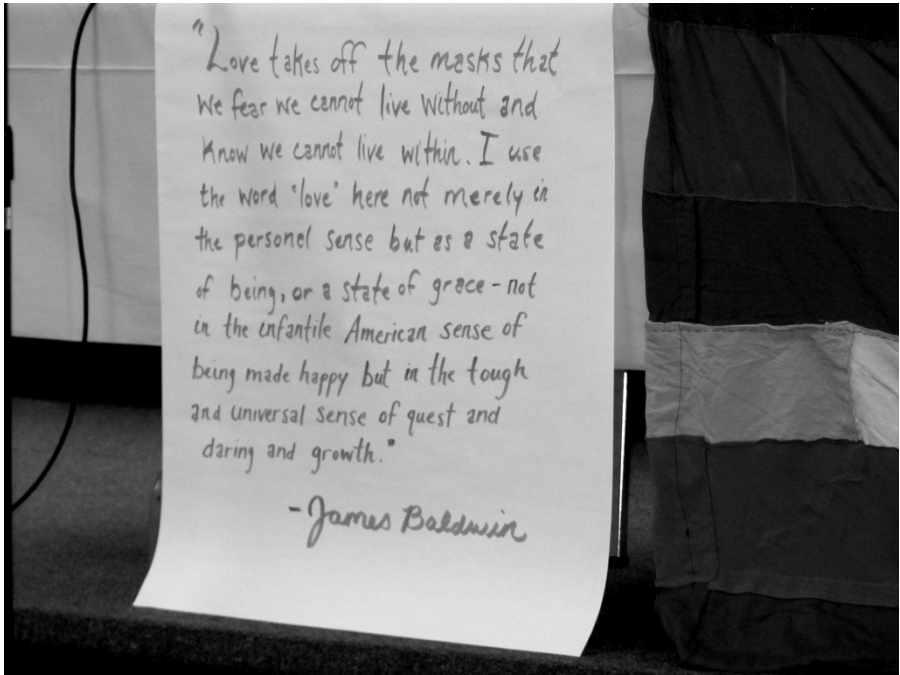 "Love takes off the masks that
we fear we cannot live without and
know we cannot live within. I use
the word "love" here not merely in
the personal sense but as a state
of being, or a state of grace - not
in the infantile American sense of
being made happy but in the tough
and universal sense of quest and
daring and growth."
- James Baldwin